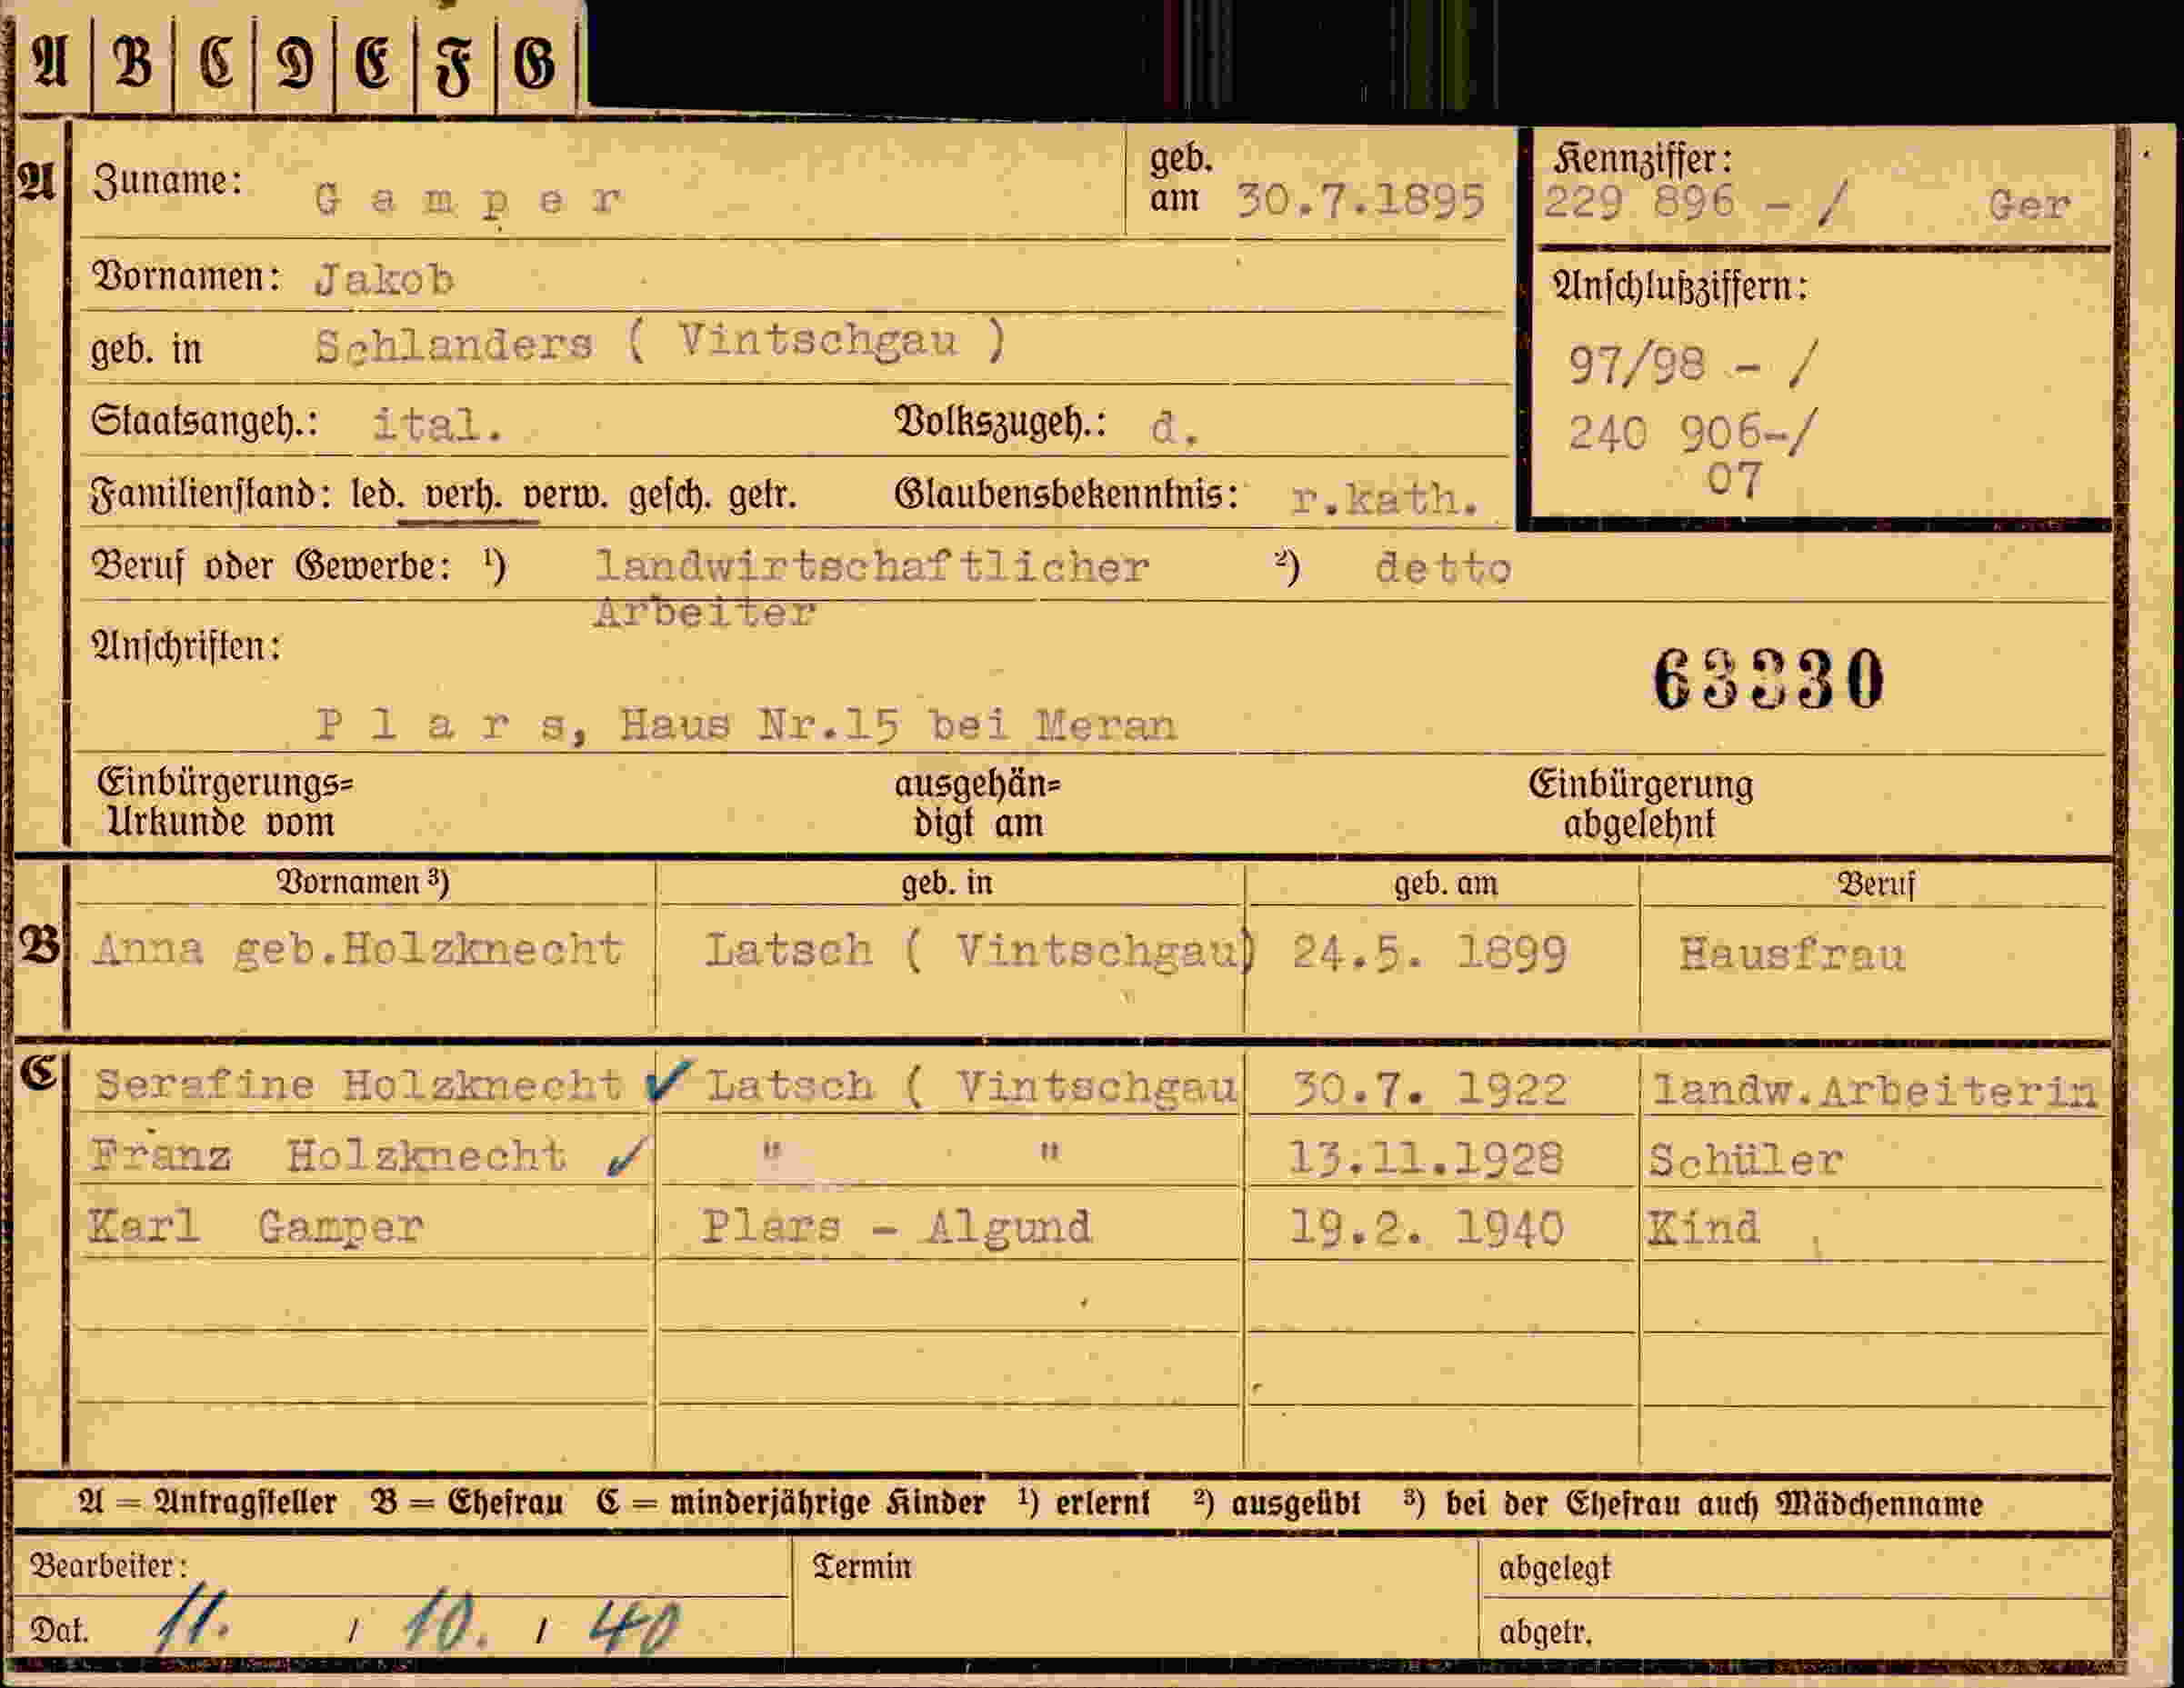 A B C D E F G
A Zuname: Gamper geb. am 30.7.1895 Kennziffer: 229 896 - / Ger
Vornamen: Jakob
geb. in Schlanders ( Vintschgau ) Anschlußziffern:
97/98 - /
Staatsangeh.: ital. Volkszugeh.: d. 240 906-/
07
Familienstand: led. verh. verw. gesch. getr. Glaubensbekenntnis: r.kath.
Beruf oder Gewerbe: ¹) landwirtschaftlicher ²) detto
Arbeiter
Anschriften:
63330
Plars, Haus Nr.15 bei Meran
Einbürgerungs= ausgehän= Einbürgerung
Urkunde vom digt am abgelehnt
Vornamen ³) geb. in geb. am Beruf
B Anna geb.Holzknecht Latsch ( Vintschgau) 24.5. 1899 Hausfrau
C Serafine Holzknecht ✓ Latsch ( Vintschgau 30.7. 1922 landw.Arbeiterin
Franz Holzknecht ✓ " " 13.11.1928 Schüler
Karl Gamper Plars - Algund 19.2. 1940 Kind
A = Antragsteller B = Ehefrau C = minderjährige Kinder ¹) erlernt ²) ausgeübt ³) bei der Ehefrau auch Mädchenname
Bearbeiter: Termin abgelegt
Dat. 11. / 10. / 40 abgetr.